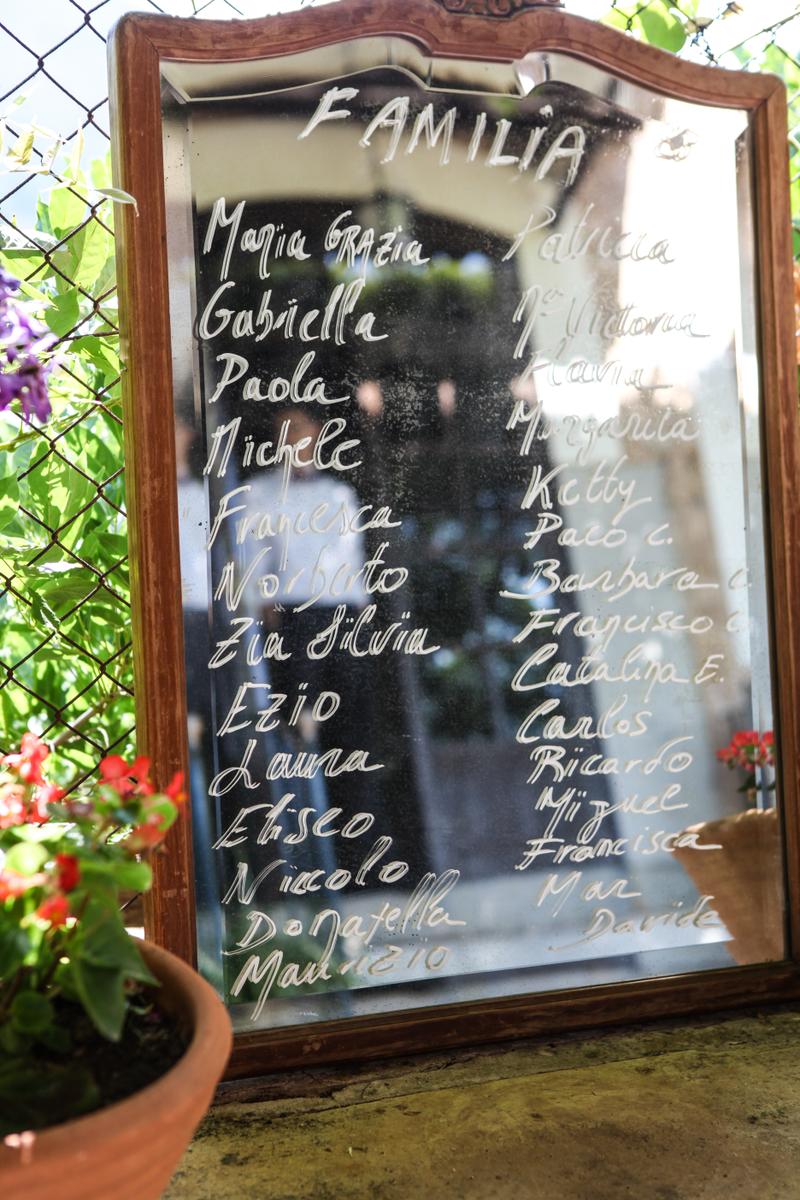 FAMILIA
Maria GRAZia
Gabriella
Paola
Michele
Francesca
Norberto
Zia Silvia
Ezio
Laura
Eliseo
Niccolo
Donatella
Maurizio
Patricia
Mª Victoria
Flavia
Margarita
Ketty
Paco C.
Barbara C.
Francisco C.
Catalina E.
Carlos
Ricardo
Miguel
Francisca
Mar
Davide